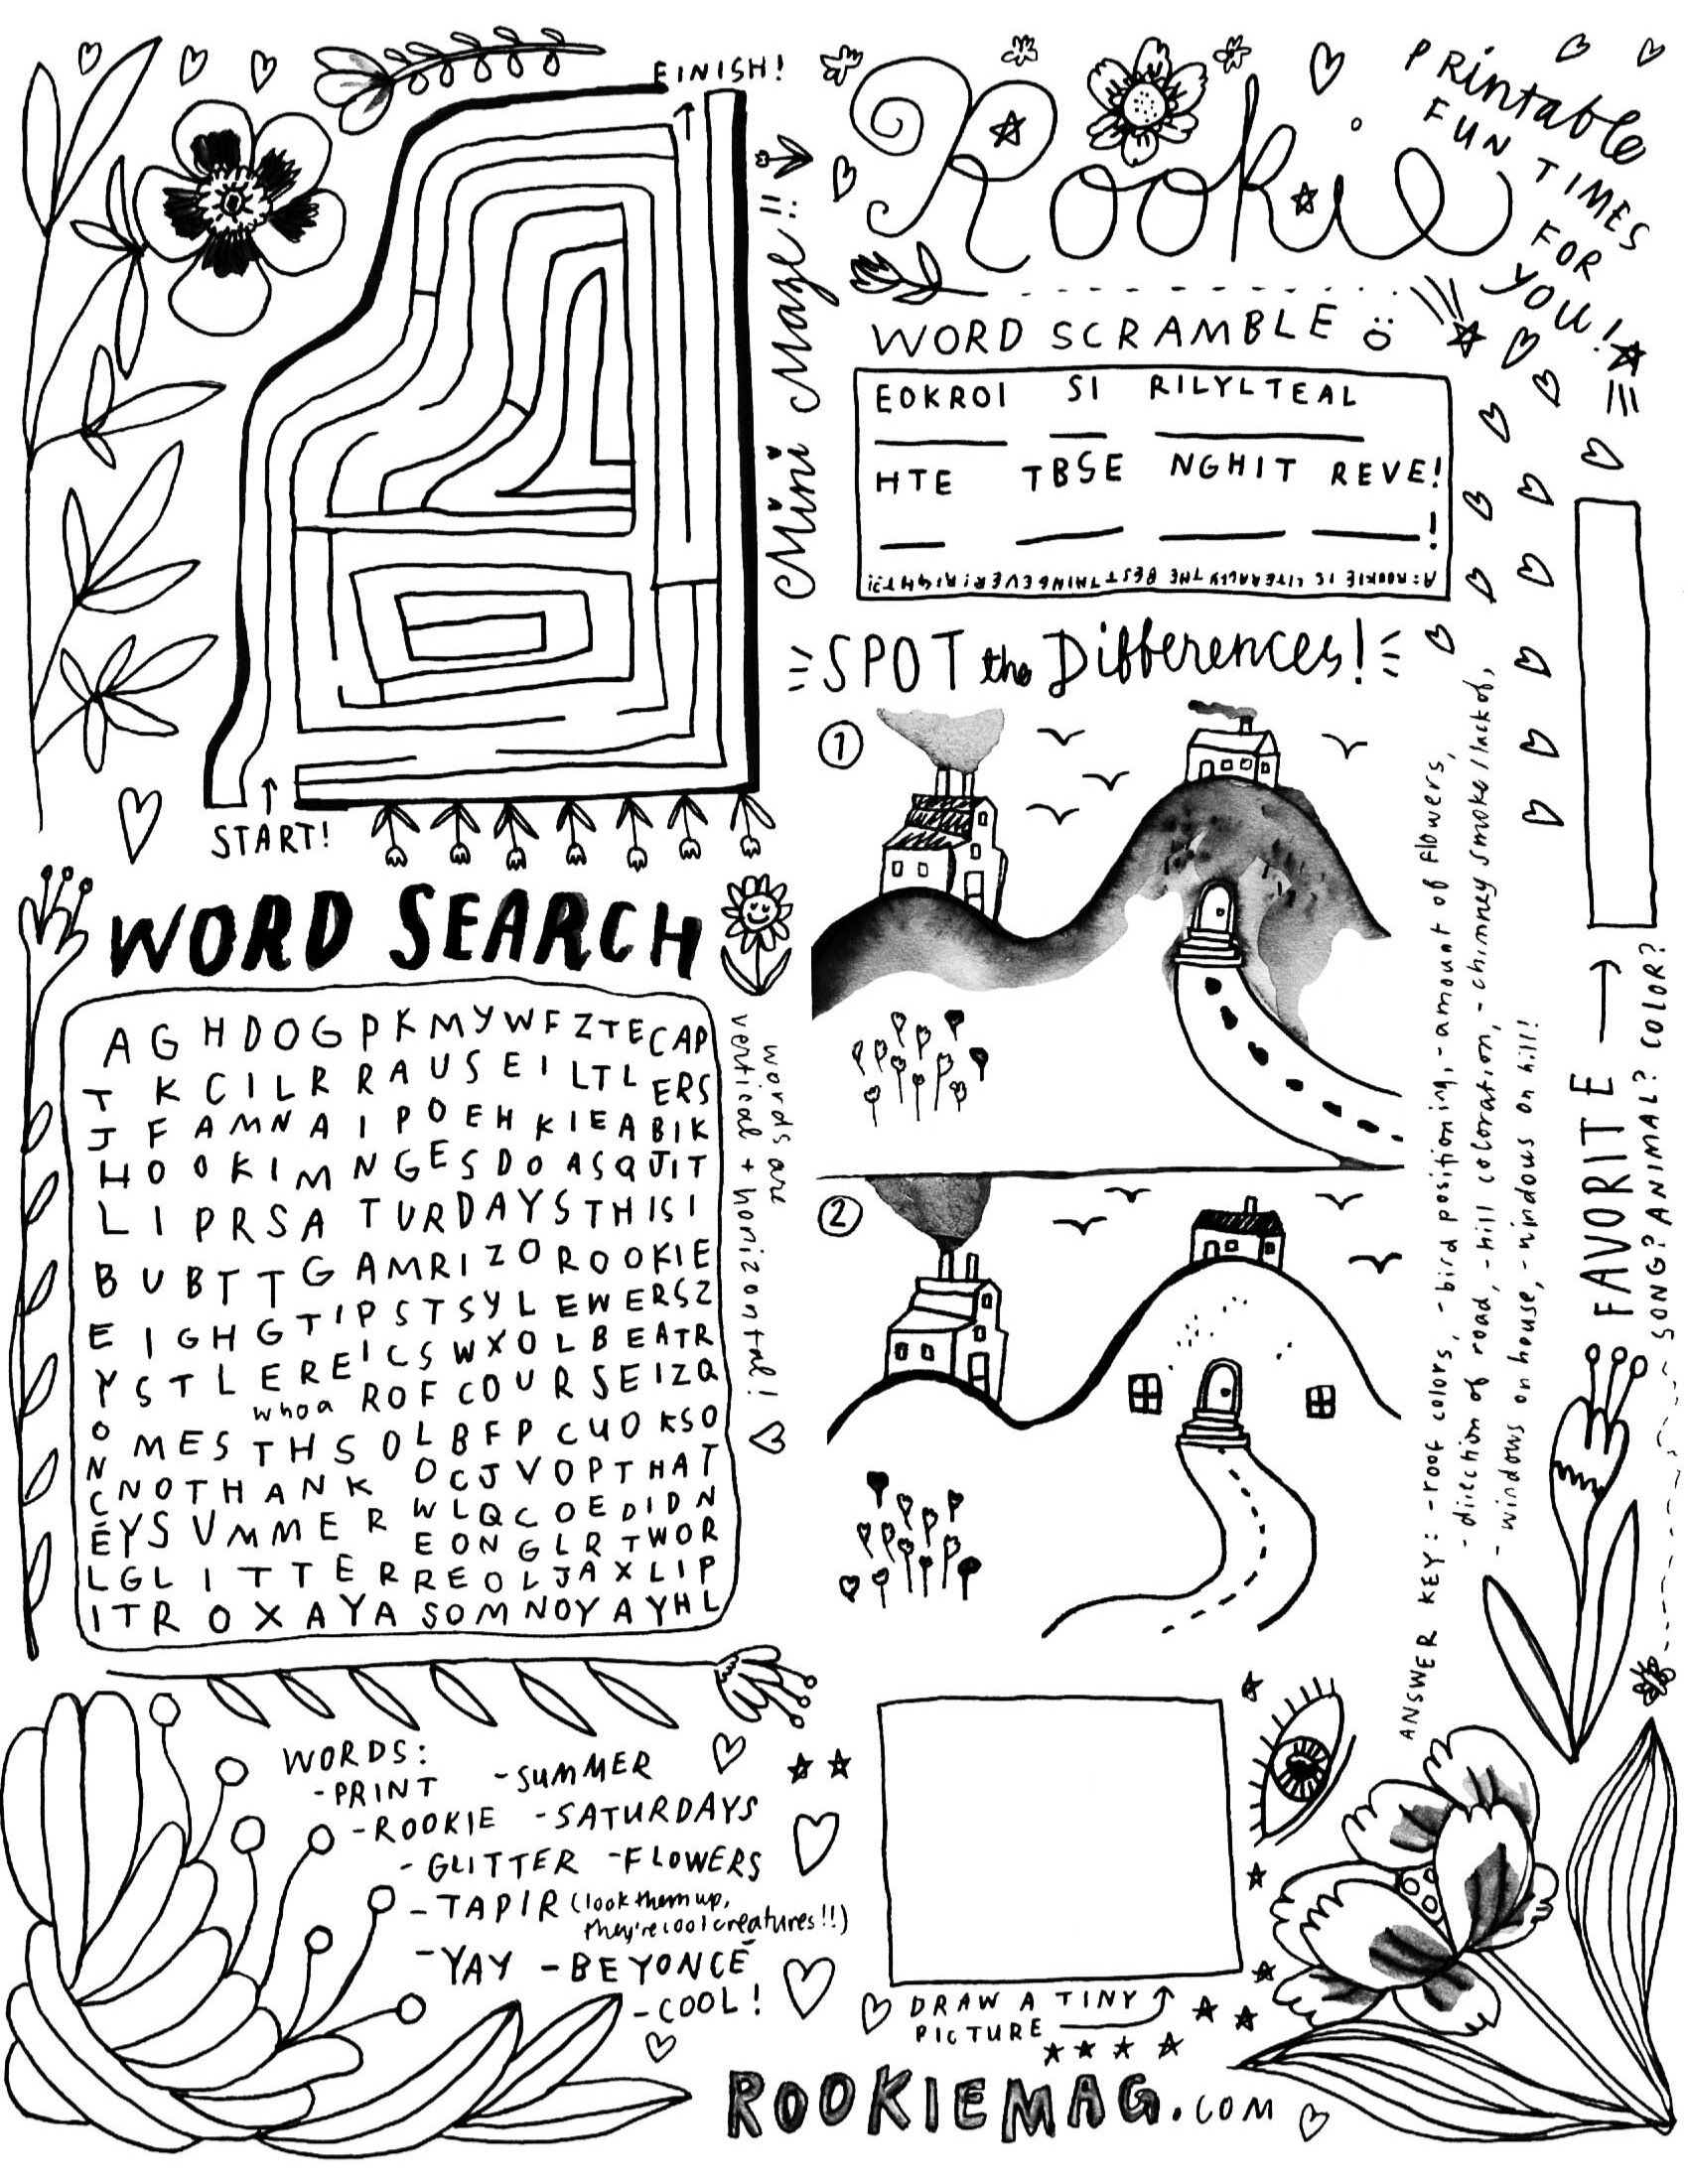 FINISH!
Mini Maze!!
START!
Rookie
PRintable
FUN TIMES
FOR
YOU!
WORD SCRAMBLE
EOKROI SI RILYLTEAL
HTE TBSE NGHIT REVE!
A: ROOKIE IS LITERALLY THE BEST THING EVER! RIGHT?!
SPOT the Differences!
1
2
ANSWER KEY: - roof colors, - bird positioning, - amount of flowers,
- direction of road, - hill coloration, - chimney smoke/lack of,
- windows on house, - windows on hill!
FAVORITE →
SONG? ANIMAL? COLOR?
WORD SEARCH
words are
vertical + horizontal!
A G H D O G P K M Y W F Z T E C A P
T K C I L R R A U S E I L T L E R S
J F A M N A I P O E H K I E A B I K
H O O K I M N G E S D O A S Q J I T
L I P R S A T U R D A Y S T H I S I
B U B T T G A M R I Z O R O O K I E
E I G H G T I P S T S Y L E W E R S Z
Y S T L E R E I C S W X O L B E A T R
whoa R O F C O U R S E I Z Q
O M E S T H S O L B F P C U O K S O
N N O T H A N K O C J V O P T H A T
C Y S U M M E R W L Q C O E D I D N
É E O N G L R T W O R
L G L I T T E R R E O L J A X L I P
I T R O X A Y A S O M N O Y A Y H L
WORDS:
-PRINT -SUMMER
-ROOKIE -SATURDAYS
-GLITTER -FLOWERS
-TAPIR (look them up,
they're cool creatures!!)
-YAY -BEYONCÉ
-COOL!
DRAW A TINY
PICTURE
ROOKIEMAG.COM